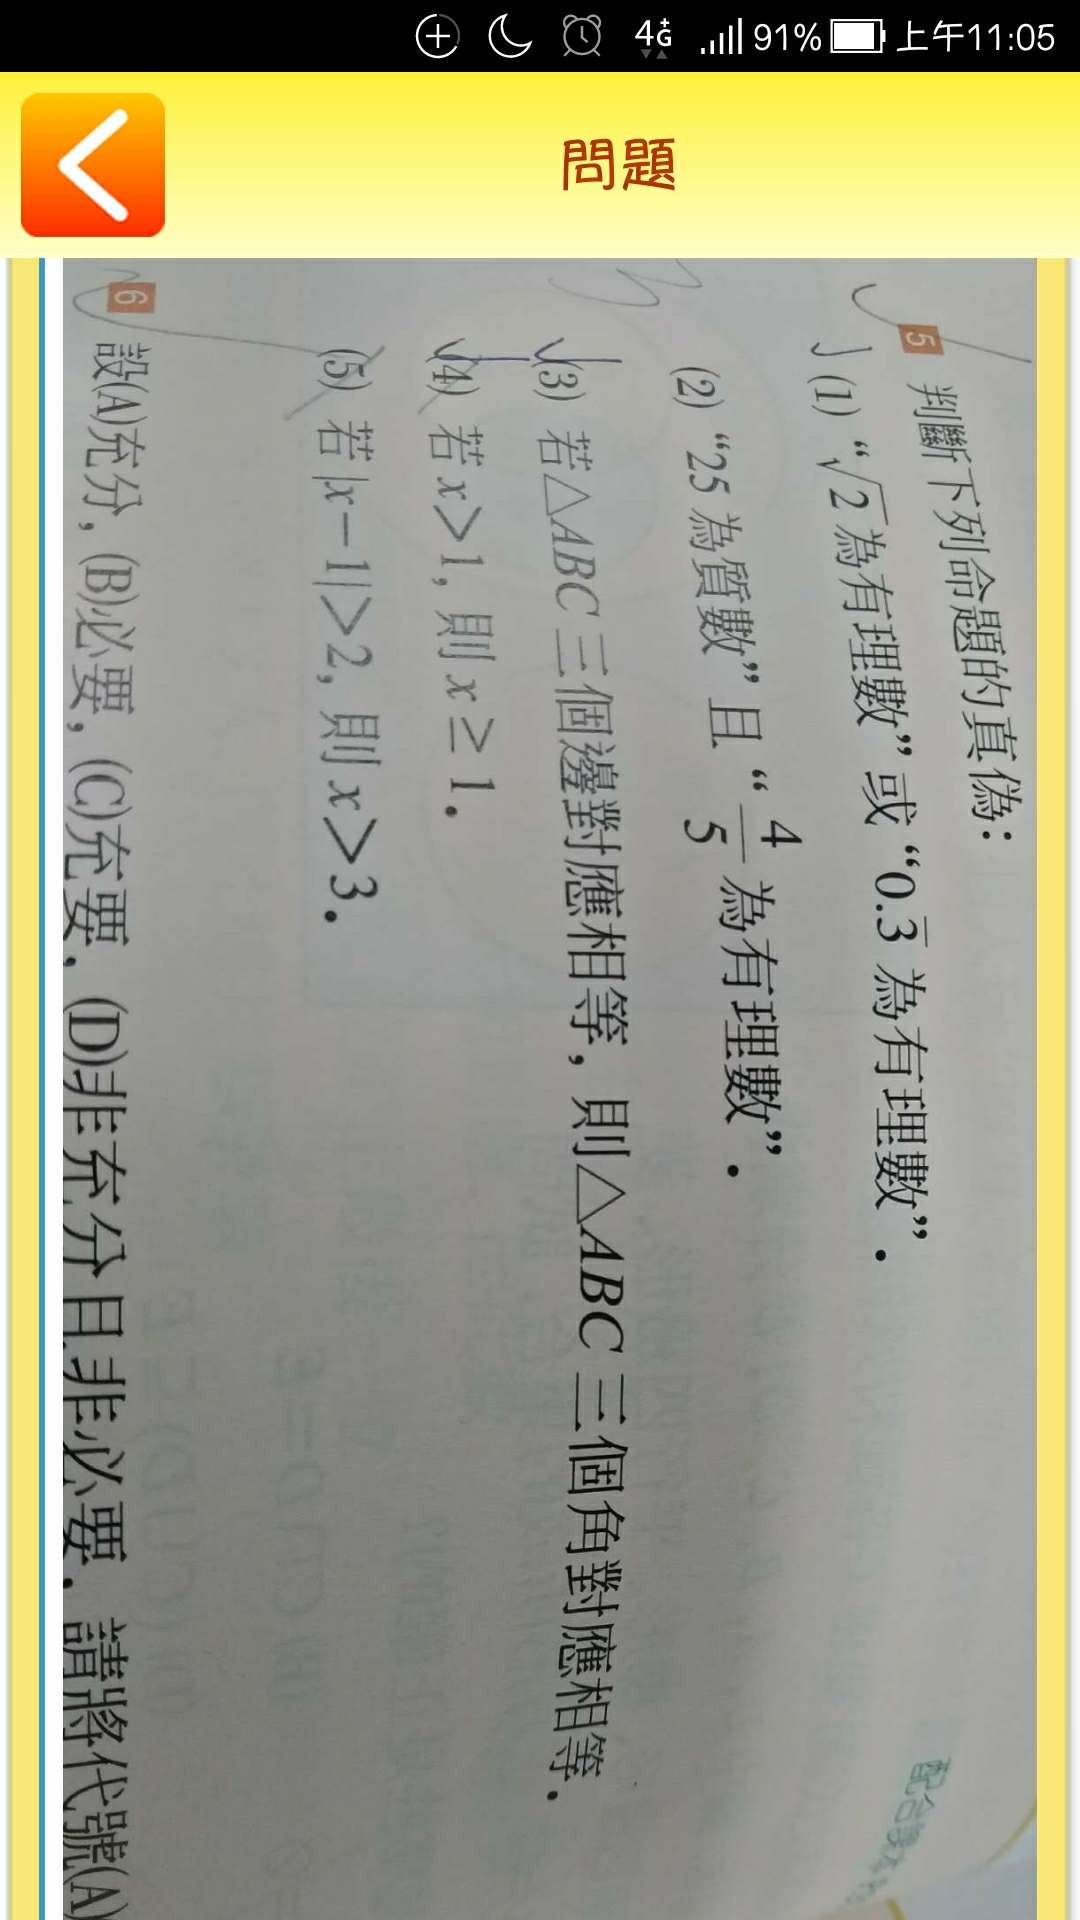 4G 91% 上午11:05
問題
5 判斷下列命題的真偽:
(1) “√2為有理數”或“0.3̅ 為有理數”.
(2) “25 為質數”且“4/5 為有理數”.
(3) 若△ABC三個邊對應相等, 則△ABC三個角對應相等.
(4) 若x>1, 則x≥1.
(5) 若|x−1|>2, 則x>3.
6 設(A)充分, (B)必要, (C)充要, (D)非充分且非必要. 請將代號(A)
配合課本